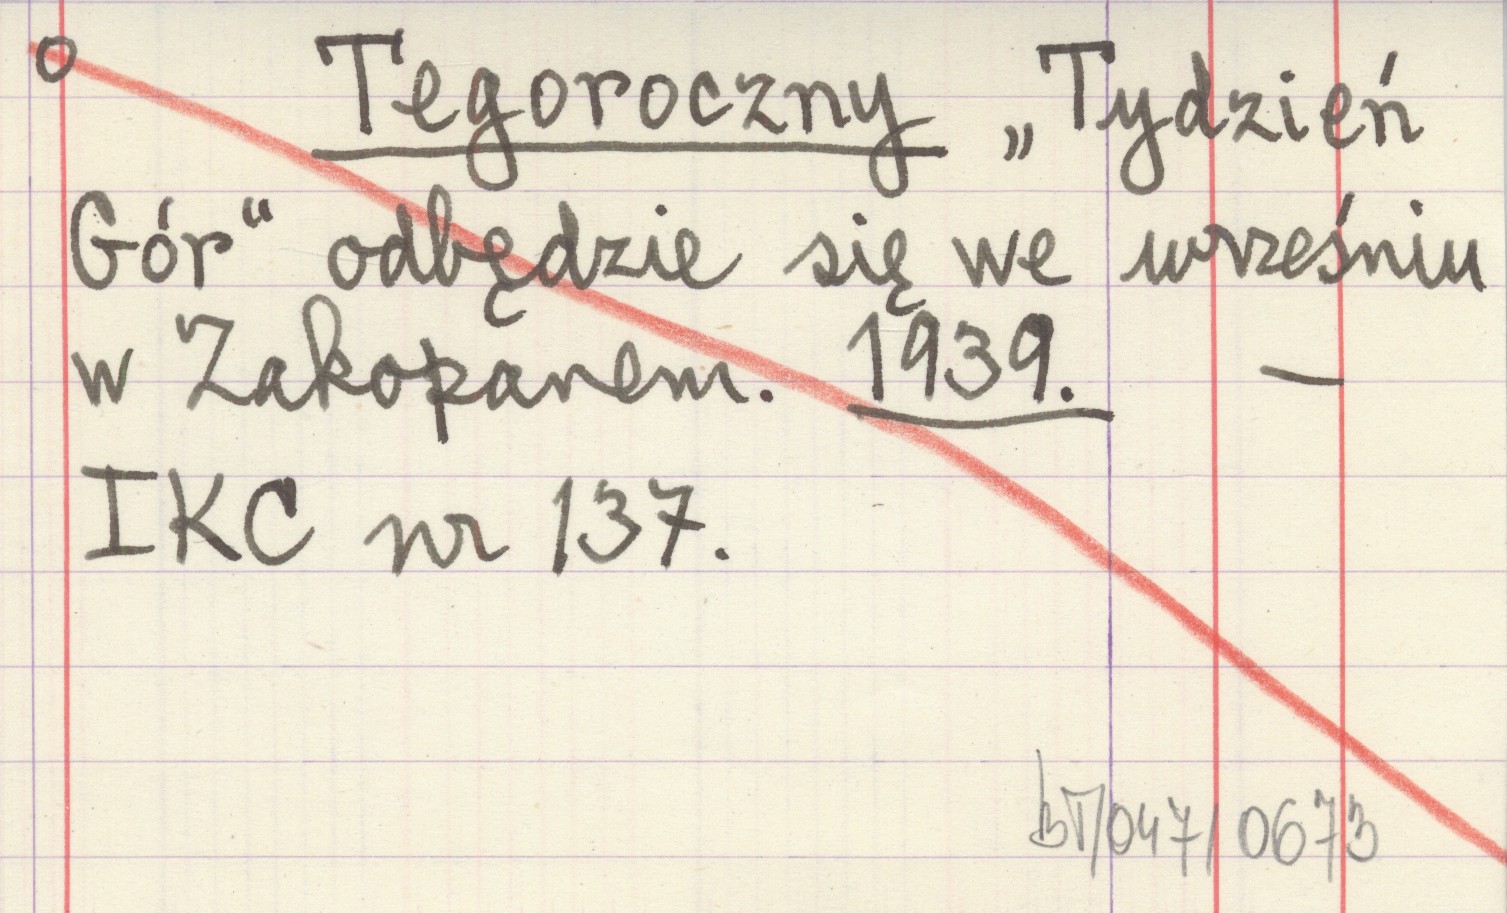 o Tegoroczny „Tydzień
Gór“ odbędzie się we wrześniu
w Zakopanem. 1939. —
IKC nr 137.
bT/047/0673